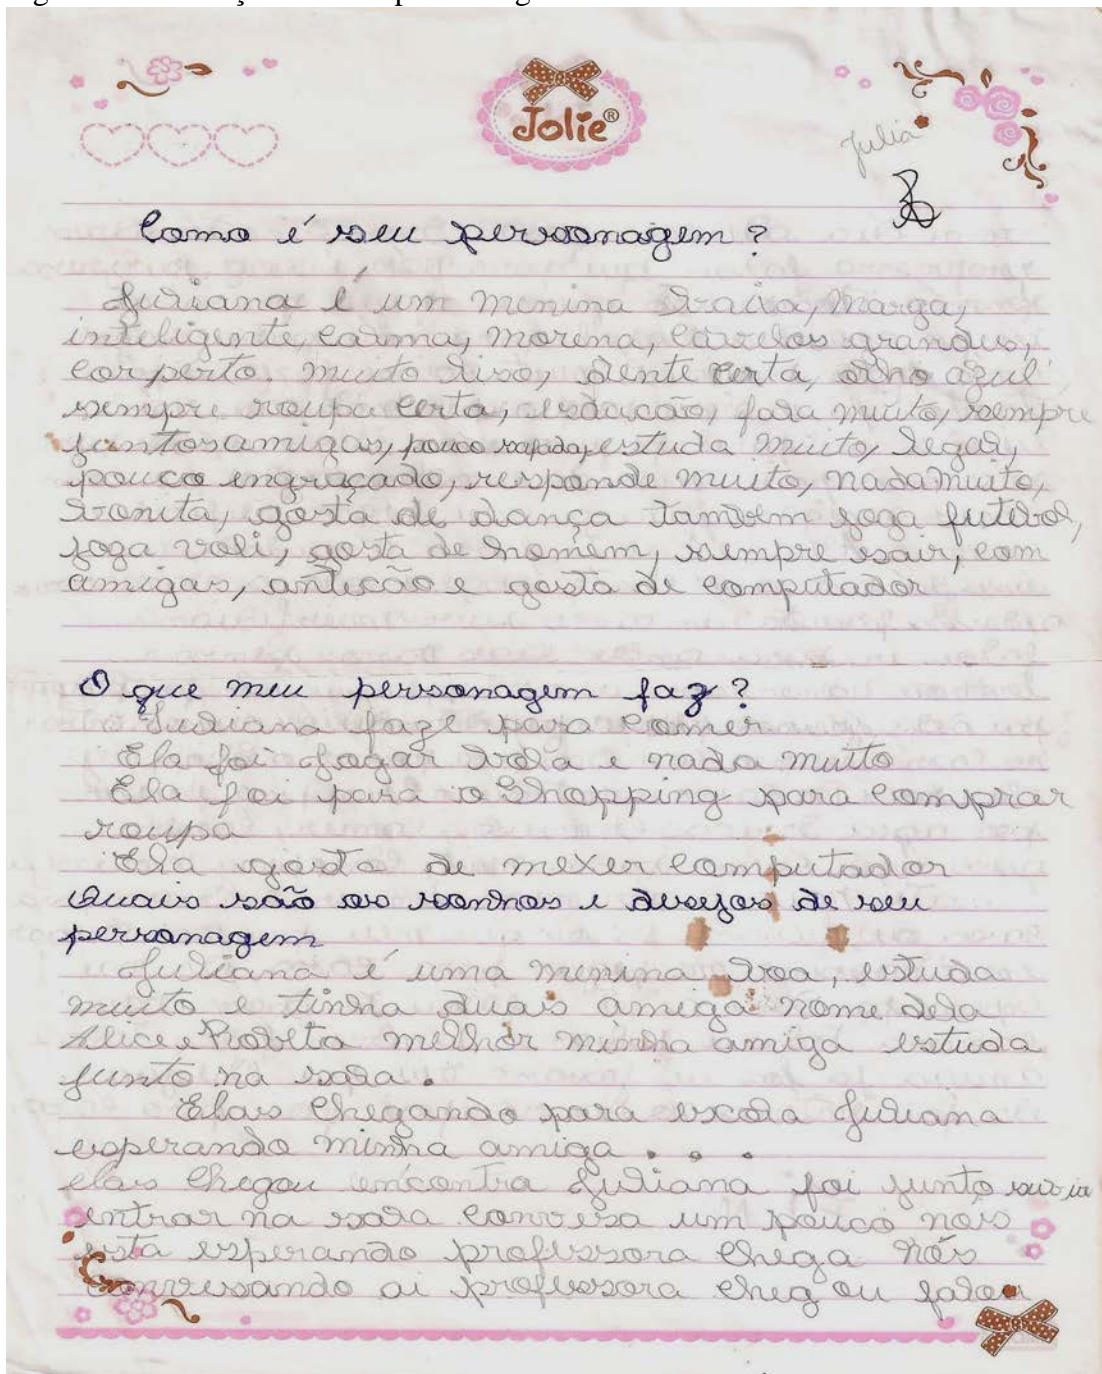 Jolie®
Julia
Como é seu personagem?
Juliana é um menina baixa, marga,
inteligente, calma, morena, cavelos grandes,
cor perto. muito liso, dente certa, olho azul
sempre roupa certa, educacão, fala muito, sempre
juntos amigas, pouco estuda muito, legal,
pouco engraçado, responde muito, nada muito,
bonita, gosta de dança também joga futebol,
joga voli, gosta de homem, sempre sair, com
amigas, antecão e gosta de computador
O que meu personagem faz?
Juliana faze para comer
Ela foi jogar bola e nada muito
Ela foi para o Shopping para comprar
roupa
Ela gosta de mexer computador
Quais são os sonhos e desejos de seu
personagem
Juliana é uma menina boa, estuda
muito e tinha duais amiga nome dela
Alice e melhor minha amiga estuda
junto na sala.
Elais chegando para escola Juliana
esperando minha amiga . . .
elais chegou encontra Juliana foi junto
entrar na sala conversa um pouco nois
esta esperando professora chega nós
conversando ai professora cheg ou falou